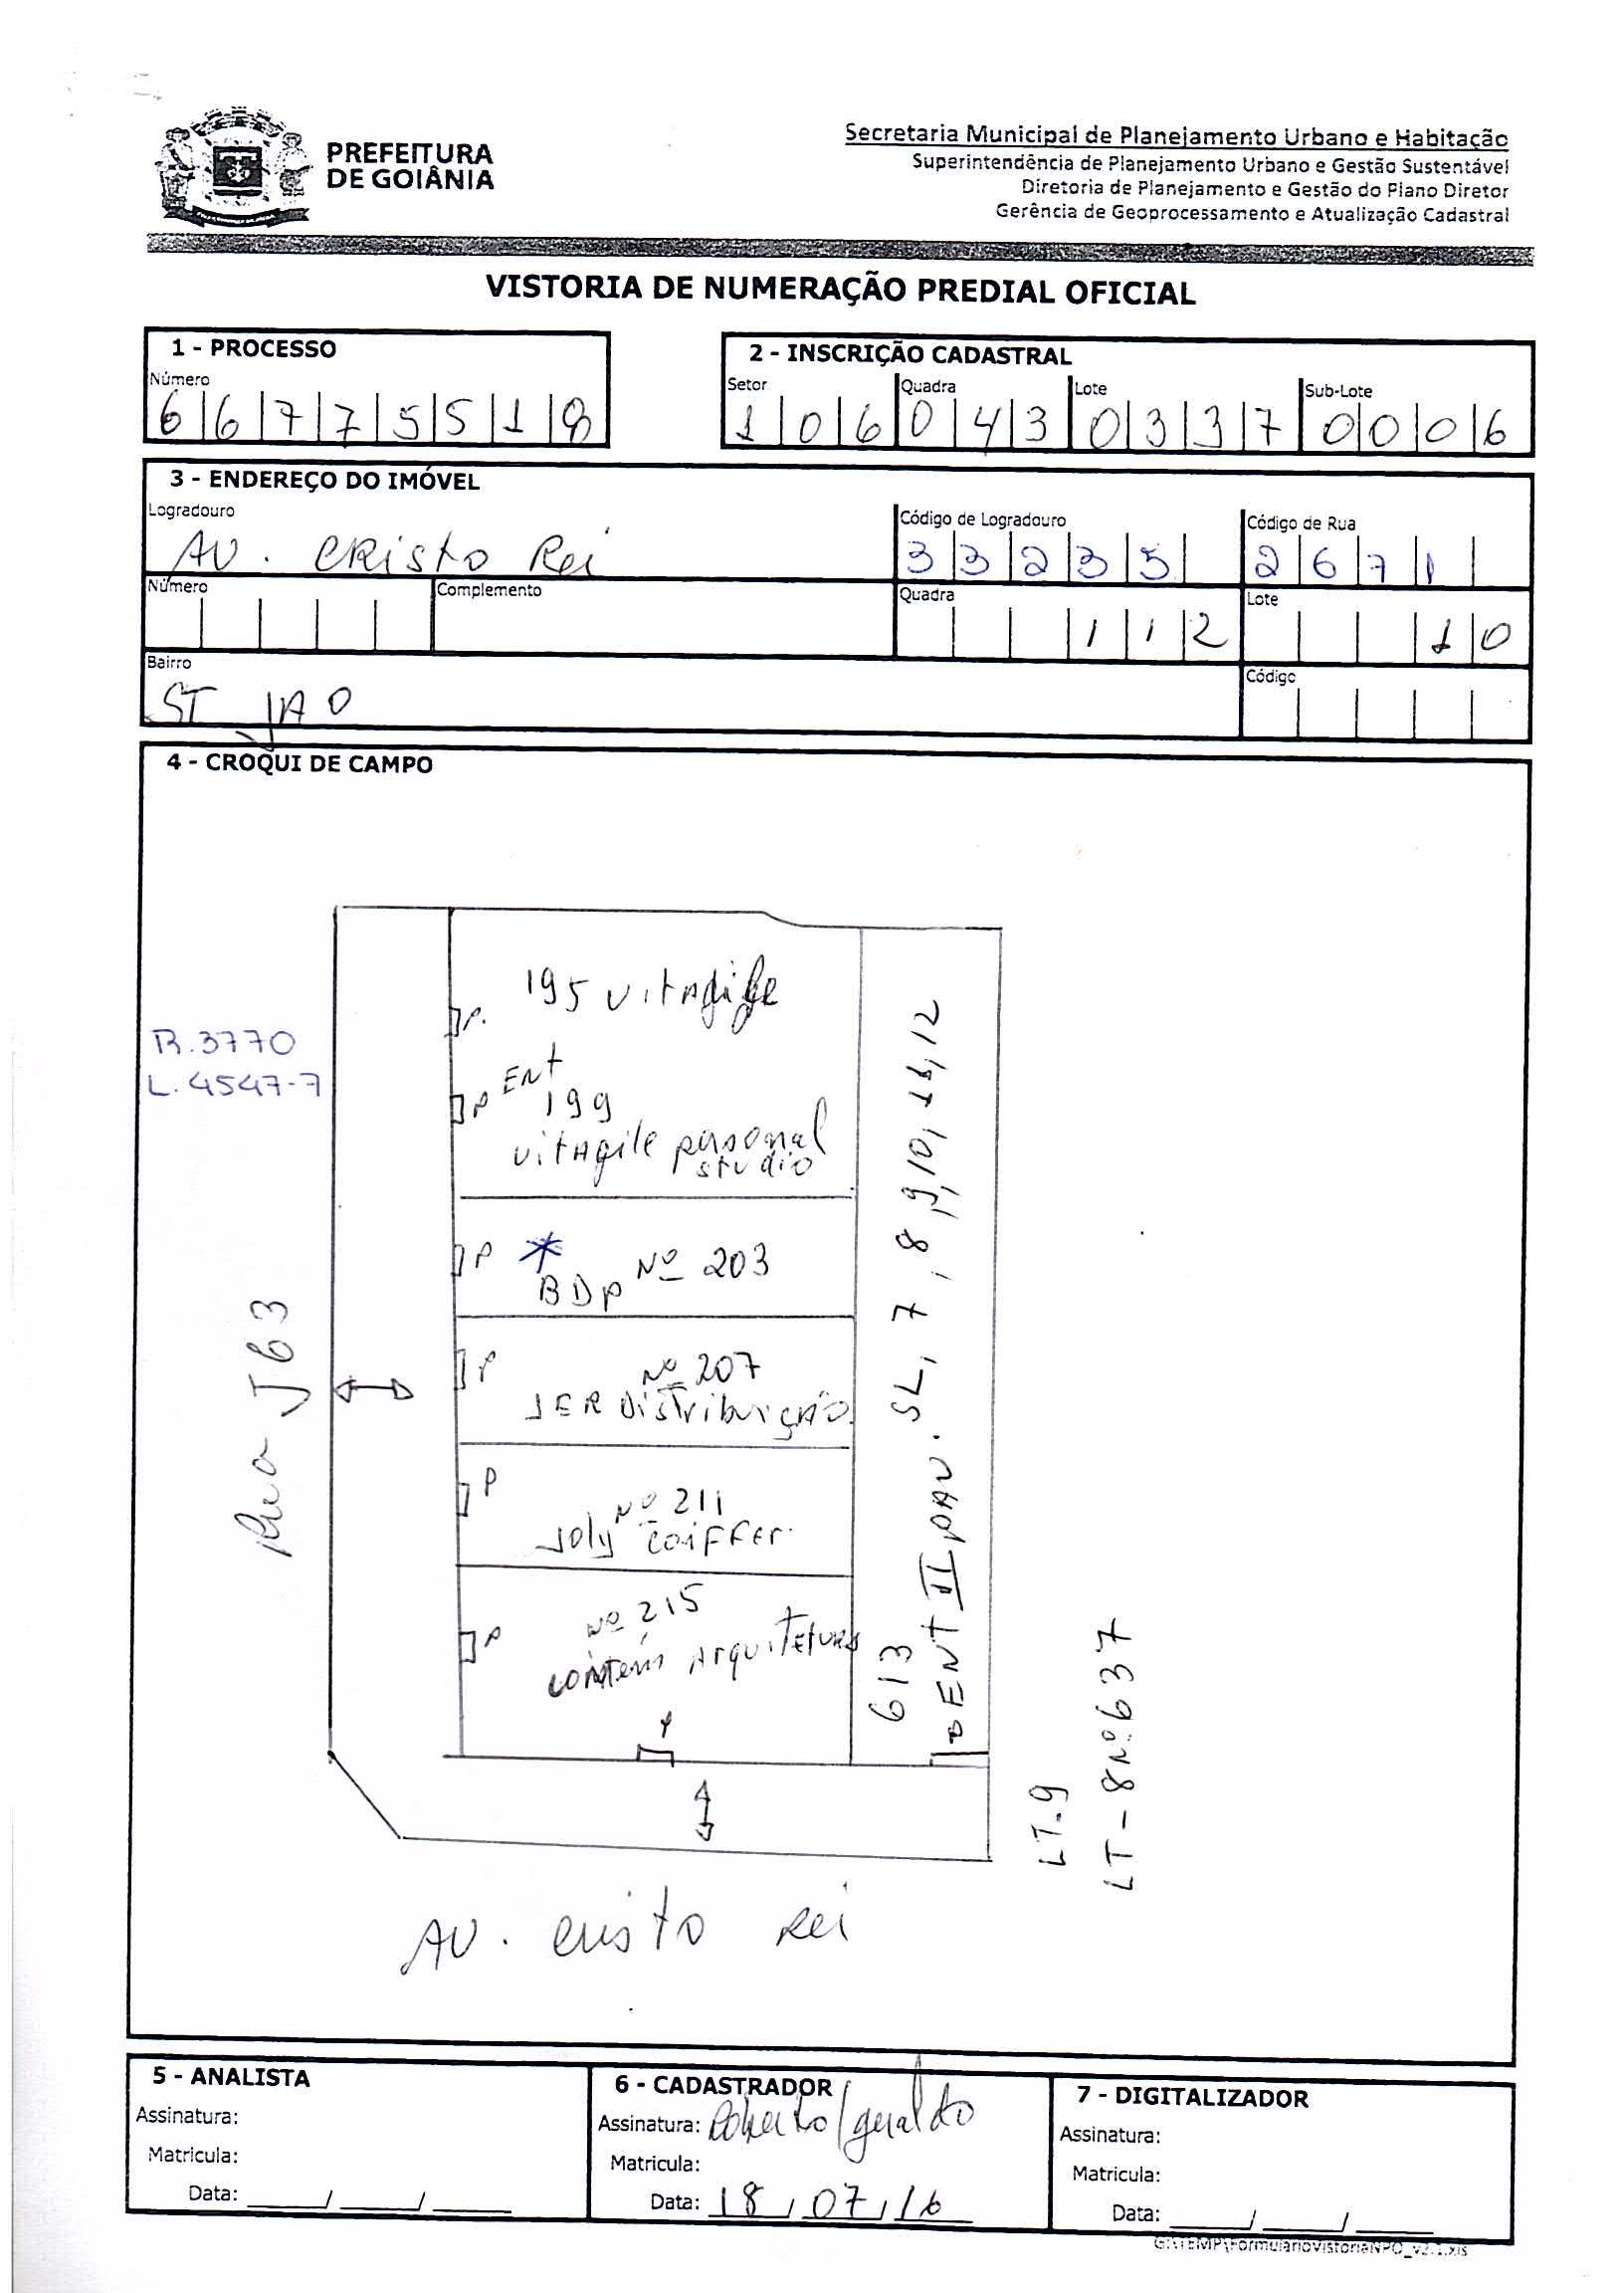 PREFEITURA
DE GOIÂNIA
Secretaria Municipal de Planejamento Urbano e Habitação
Superintendência de Planejamento Urbano e Gestão Sustentável
Diretoria de Planejamento e Gestão do Plano Diretor
Gerência de Geoprocessamento e Atualização Cadastral
VISTORIA DE NUMERAÇÃO PREDIAL OFICIAL
1 - PROCESSO
Número
6 6 7 7 5 5 1 8
2 - INSCRIÇÃO CADASTRAL
Setor Quadra Lote Sub-Lote
1 0 6 0 4 3 0 3 3 7 0 0 0 6
3 - ENDEREÇO DO IMÓVEL
Logradouro Código de Logradouro Código de Rua
AV. CRISTO Rei 3 3 2 3 5 2 6 7 1
Número Complemento Quadra Lote
1 1 2 1 0
Bairro Código
ST JAO
4 - CROQUI DE CAMPO
195 vitAgile
P.
R.3770
L.4547-7
ENt
P 199
vitAgile personal
studio
P * Nº 203
BDP
P Nº 207
JER DiSTribuiçÃO
P
Nº 211
Joly coiFFer.
Nº 215
P
ARQUITETURA
P
Rua J63
613
ENT II PAV. SL, 7, 8, 9, 10, 11, 12
LT.9
LT-8 Nº 637
AV. cristo Rei
5 - ANALISTA
Assinatura:
Matricula:
Data: ____/____/____
6 - CADASTRADOR
Assinatura: Roberto/geraldo
Matricula:
Data: 18/07/16
7 - DIGITALIZADOR
Assinatura:
Matricula:
Data: ____/____/____
G:\TEMP\FormularioVistoriaNPO_v2.1.xls